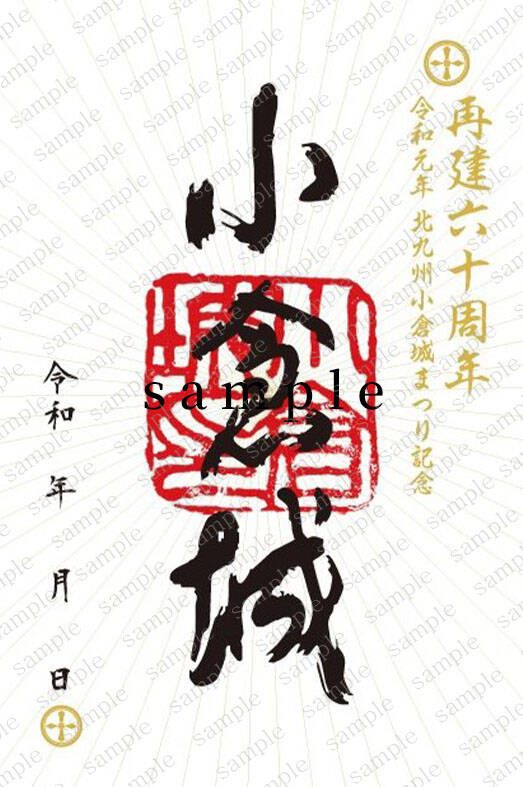 再建六十周年
令和元年 北九州小倉城まつり記念
小倉城
sample
令和 年 月 日